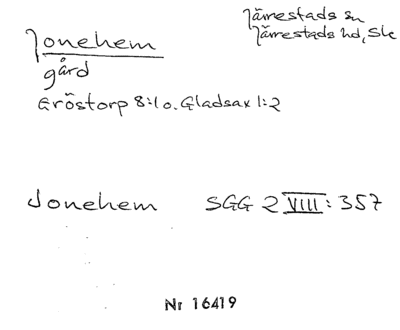 Jonehem
gård
Järrestads sn
Järrestads hd, Sk
Gröstorp 8:1 o. Gladsax 1:2
Jonehem SGG 2 VIII: 357
Nr 16419